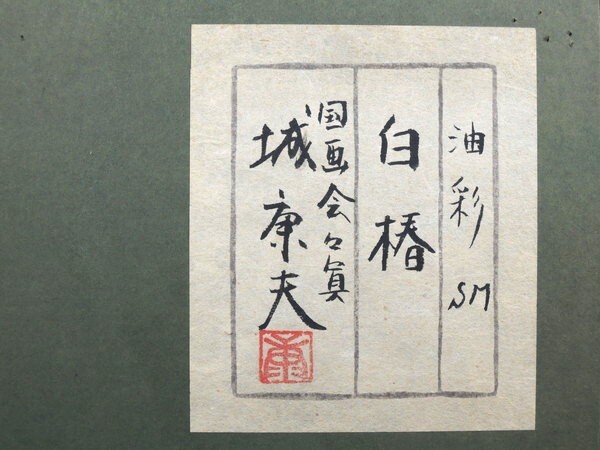 油彩 SM
白椿
国画会々員
城康夫
康